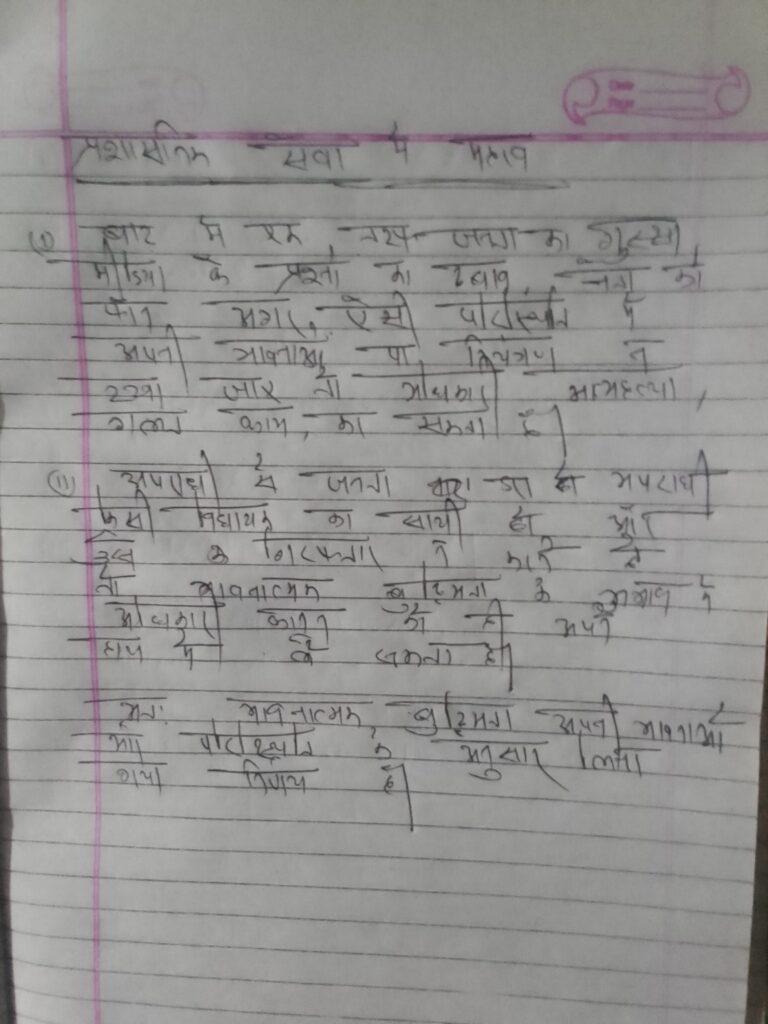 प्रशासनिक सेवा में महत्व
(i) बाढ़ में एक तरफ जनता का गुस्सा,
मीडिया के प्रश्नों का दबाव, नेता का
फोन, अगर ऐसी परिस्थिति में
अपनी भावनाओं पर नियंत्रण न
रखा जाए तो अधिकारी आत्महत्या,
गलत काम, कर सकता है।
(ii) अपराधी से जनता हो अपराधी
किसी विधायक का साथी हो और
के गिरफ्तार न करने दे
तो भावनात्मक बुद्धिमता के अभाव में
अधिकारी कानून को ही अपने
हाथ में ले सकता है।
अतः भावनात्मक बुद्धिमता अपनी भावनाओं
और परिस्थिति के अनुसार लिया
गया निर्णय है।